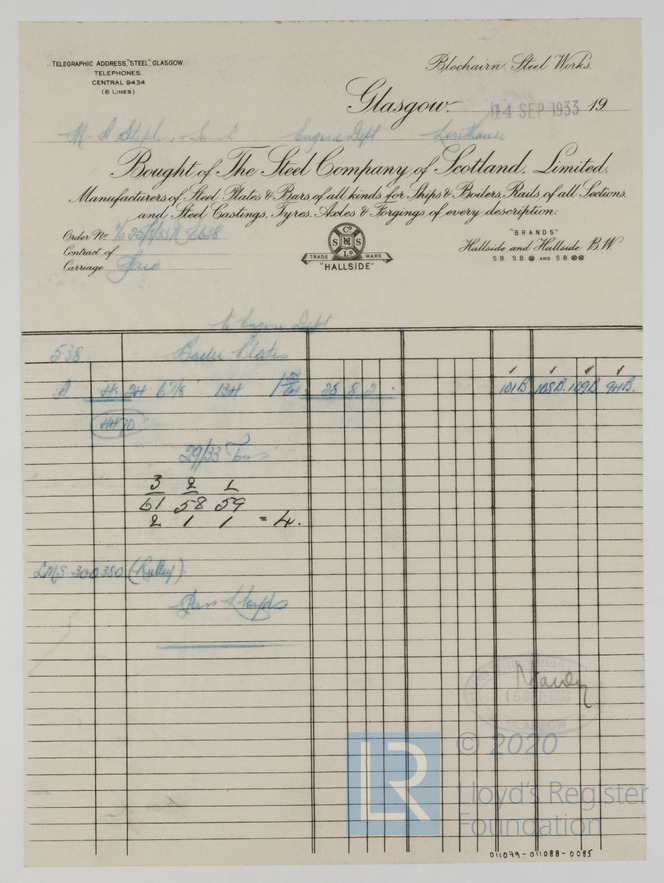 TELEGRAPHIC ADDRESS, "STEEL" GLASGOW.
TELEPHONES.
CENTRAL 9434
(6 LINES)
Blochairn Steel Works.
Glasgow, 14 SEP 1933 19
Engine Dept Linthouse
Bought of The Steel Company of Scotland, Limited.
Manufacturers of Steel Plates & Bars of all kinds for Ships & Boilers, Rails of all Sections,
and Steel Castings, Tyres, Axles & Forgings of every description.
Order No.
Contract of
Carriage Paid
Co
S S
Ld
TRADE MARK
"HALLSIDE"
"BRANDS"
Hallside and Hallside B.W.
S.B. S.B. ⊗ AND S.B ⊗⊗
Engine Dept
538 Boiler Plates
A 101B 108B 109B 94B
29/33 Tons
3 2 1
61 58 59
2 1 1 = 4.
LMS 300380
Pass Lloyds
LR
© 2020
Lloyd's Register
Foundation
011079-011088-0085